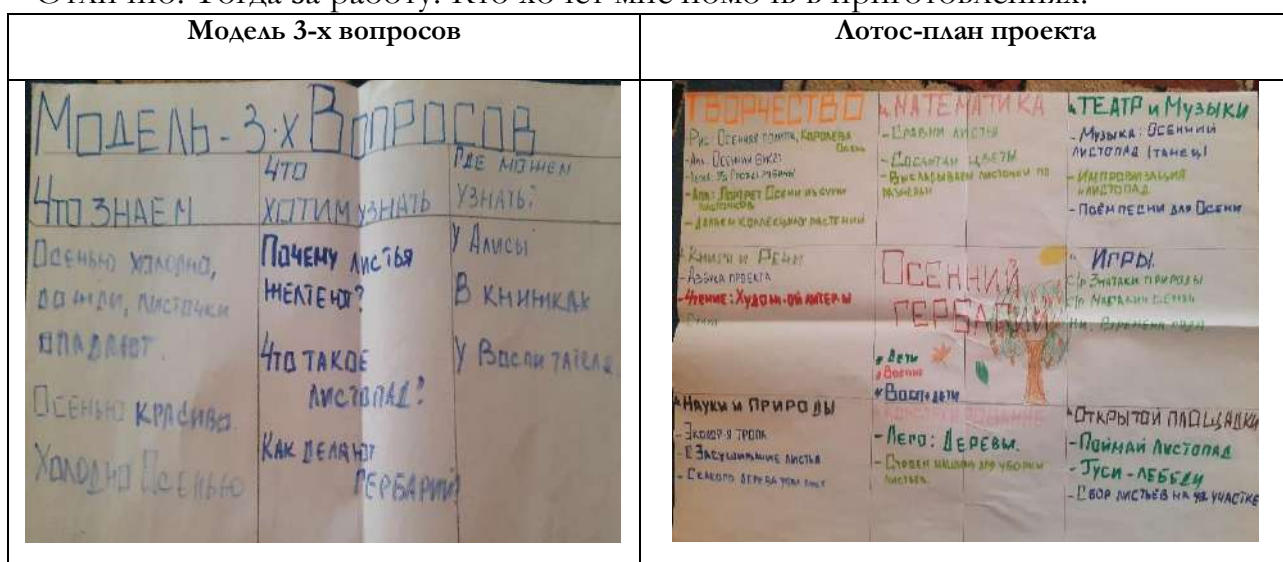 Отлично! Тогда за работу! Кто хочет мне помочь в приготовлениях?
Модель 3-х вопросов
Лотос-план проекта
МОДЕЛЬ-3-х ВОПРОСОВ
ЧТО ЗНАЕМ
Осенью холодно,
дожди, листочки
опадают.
Осенью красиво.
Холодно осенью
ЧТО
ХОТИМ УЗНАТЬ
Почему листья
желтеют?
Что такое
листопад?
Как делают
гербарий?
ГДЕ МОЖЕМ
УЗНАТЬ?
У Алисы
В книжках
У Воспитателя
ТВОРЧЕСТВО
- Рис: Осенняя Королева
Осень
- Апп: Портрет Осени из сухих
листочков
- Делаем коллекцию растений
МАТЕМАТИКА
- Сравни листья
- Сосчитай цветы
- Выкладываем листочки по
размеру
ТЕАТР и Музыки
- Музыка: Осенний
листопад (танец)
- Импровизация
листопад
- Поём песни для Осени
Книги и Речи
- Азбука проекта
- Чтение: Худож-ой литер-ы
ОСЕННИЙ
ГЕРБАРИЙ
Дети
Восп-ль
Игры
С/р Знатоки природы
С/р Магазин семян
Н/и: Времена года
Науки и Природы
- Эколог-я тропа
- Засушивание листьев
- С какого дерева упал лист
- Лего: Деревья.
- Строим машину для уборки
листьев.
Открытой площадки
- Поймай листопад
- Гуси-лебеди
- Сбор листьев на участке